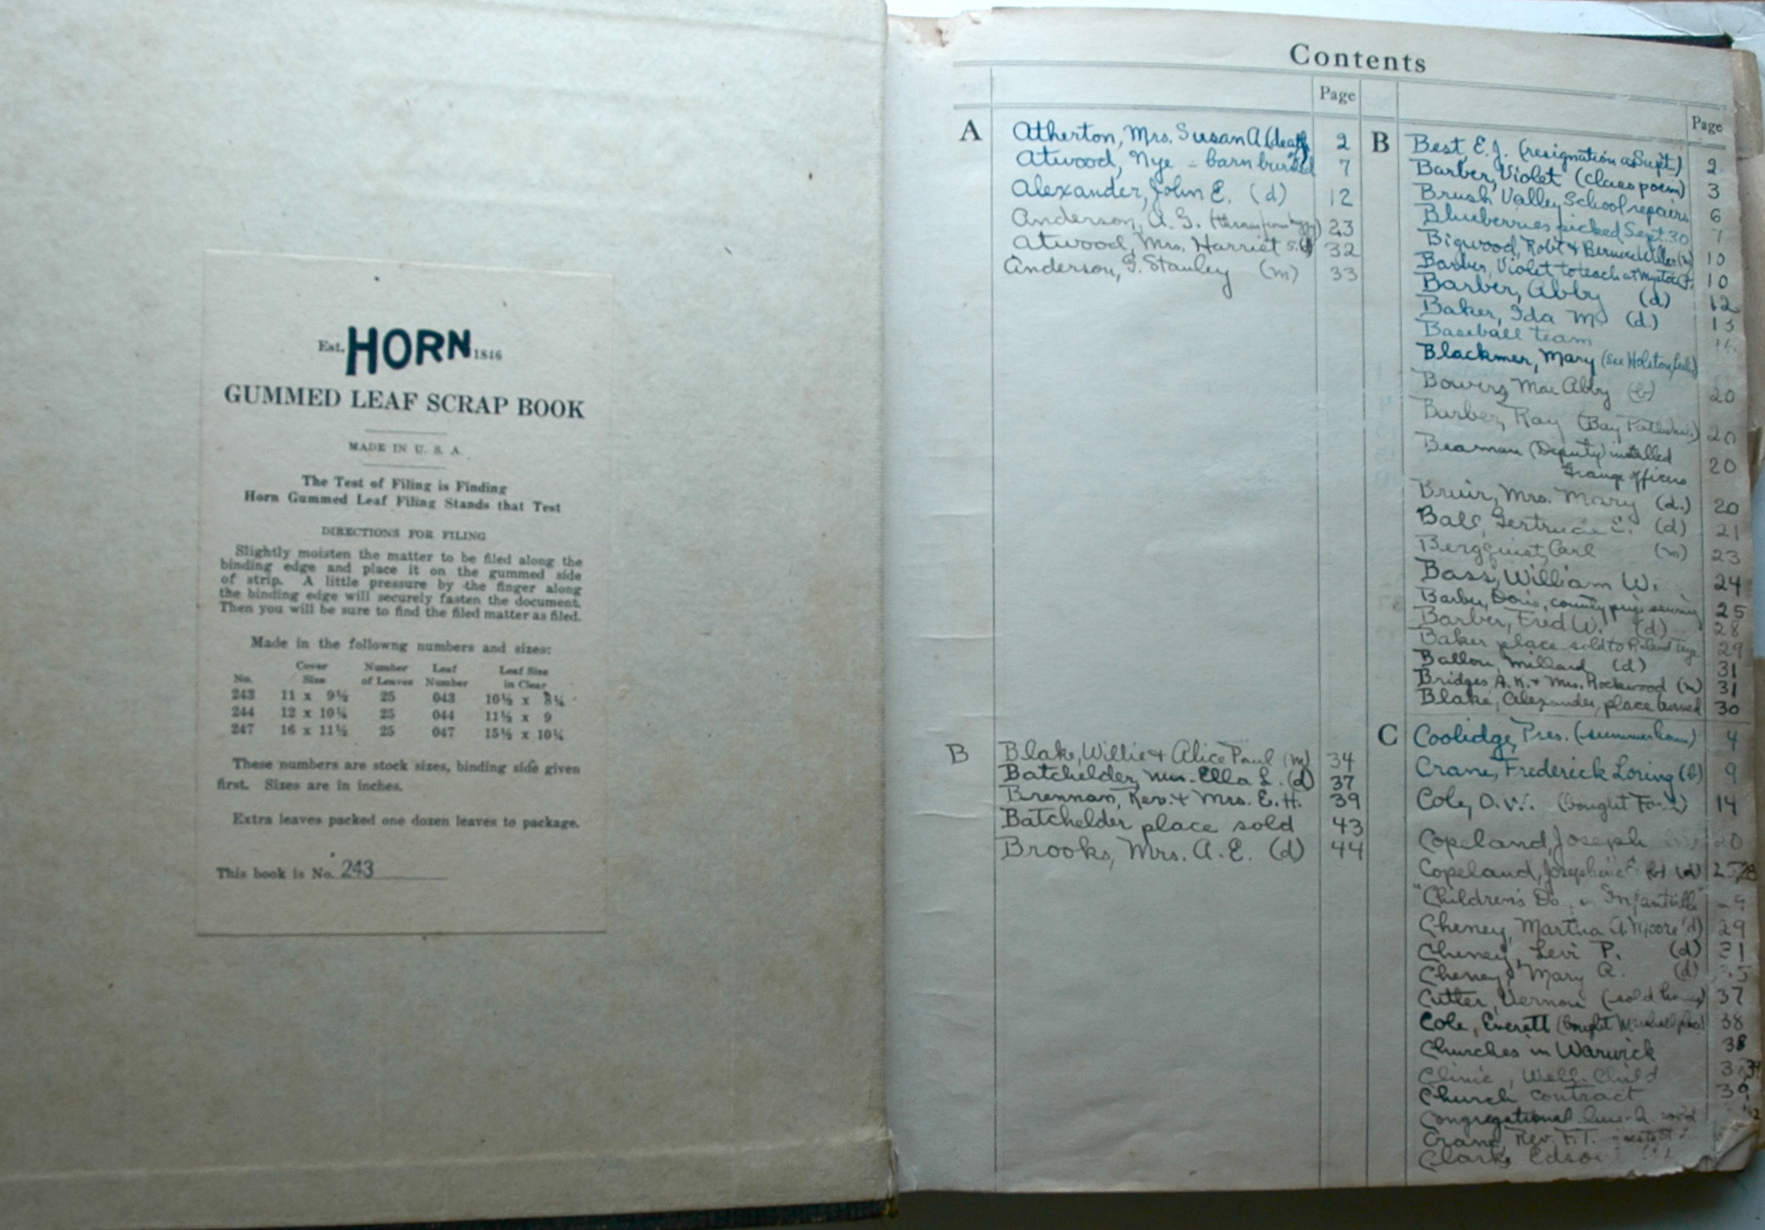 Est. HORN 1846
GUMMED LEAF SCRAP BOOK
MADE IN U. S. A.
The Test of Filing is Finding
Horn Gummed Leaf Filing Stands that Test
DIRECTIONS FOR FILING
Slightly moisten the matter to be filed along the
binding edge and place it on the gummed side
of strip. A little pressure by the finger along
the binding edge will securely fasten the document.
Then you will be sure to find the filed matter as filed.
Made in the followng numbers and sizes:
No. Cover Size Number of Leaves Leaf Number Leaf Size in Clear
243 11 x 9½ 25 043 10½ x 8¼
244 12 x 10¼ 25 044 11½ x 9
247 16 x 11½ 25 047 15½ x 10¼
These numbers are stock sizes, binding side given
first. Sizes are in inches.
Extra leaves packed one dozen leaves to package.
This book is No. 243
Contents
Page
A Atherton, Mrs. Susan A (death) 2
Atwood, Nye - barn burned 7
Alexander, John E. (d) 12
Anderson, A. G. 23
Atwood, Mrs. Harriet S. (d) 32
Anderson, G. Stanley (m) 33
B Blake, Willie & Alice Paul (m) 34
Batchelder, Mrs. Ella L. (d) 37
Brennan, Rev. & Mrs. E. H. 39
Batchelder place sold 43
Brooks, Mrs. A. E. (d) 44
Page
B Best E. J. (resignation as Supt.) 2
Barber, Violet (class poem) 3
Brush Valley School repairs 6
Blueberries picked Sept. 30 7
Bigwood, Robt & Bernice Willis (m) 10
Barber, Violet to teach at 10
Barber, Abby (d) 12
Baker, Ida M. (d.) 13
Baseball team
Blackmer, Mary (see Holston, ) 
Bowers, Mae Abby (b) 20
Barber, Ray (Bay Path ) 20
Beaman (Deputy) installed
Grange officers 20
Bruir, Mrs. Mary (d.) 20
Ball, Gertrude E. (d) 21
Bergquist, Carl (m) 23
Bass, William W. 24
Barber, Doris, county prize sewing 25
Barber, Fred W. (d) 28
Baker place sold to 29
Ballou, Millard (d) 31
Bridges A. K. & Mrs. Rockwood (m) 31
Blake, Alexander, place burned 30
C Coolidge, Pres. (summer home) 4
Crane, Frederick Loring (b) 9
Cole, O. W. (bought Farm) 14
Copeland, Joseph 20
Copeland, Josephine 25, 28
"Children's Day in Infantville"
Cheney, Martha A. Moore (d) 29
Cheney, Levi P. (d) 31
Cheney, Mary R. (d)
Cutter, Vernon (sold home) 37
Cole, Everett (bought place) 38
Churches in Warwick 38
Clinic, Well-Child
Church contract 39
Congregational
Crane, Rev. F. T.
Clark, Edson